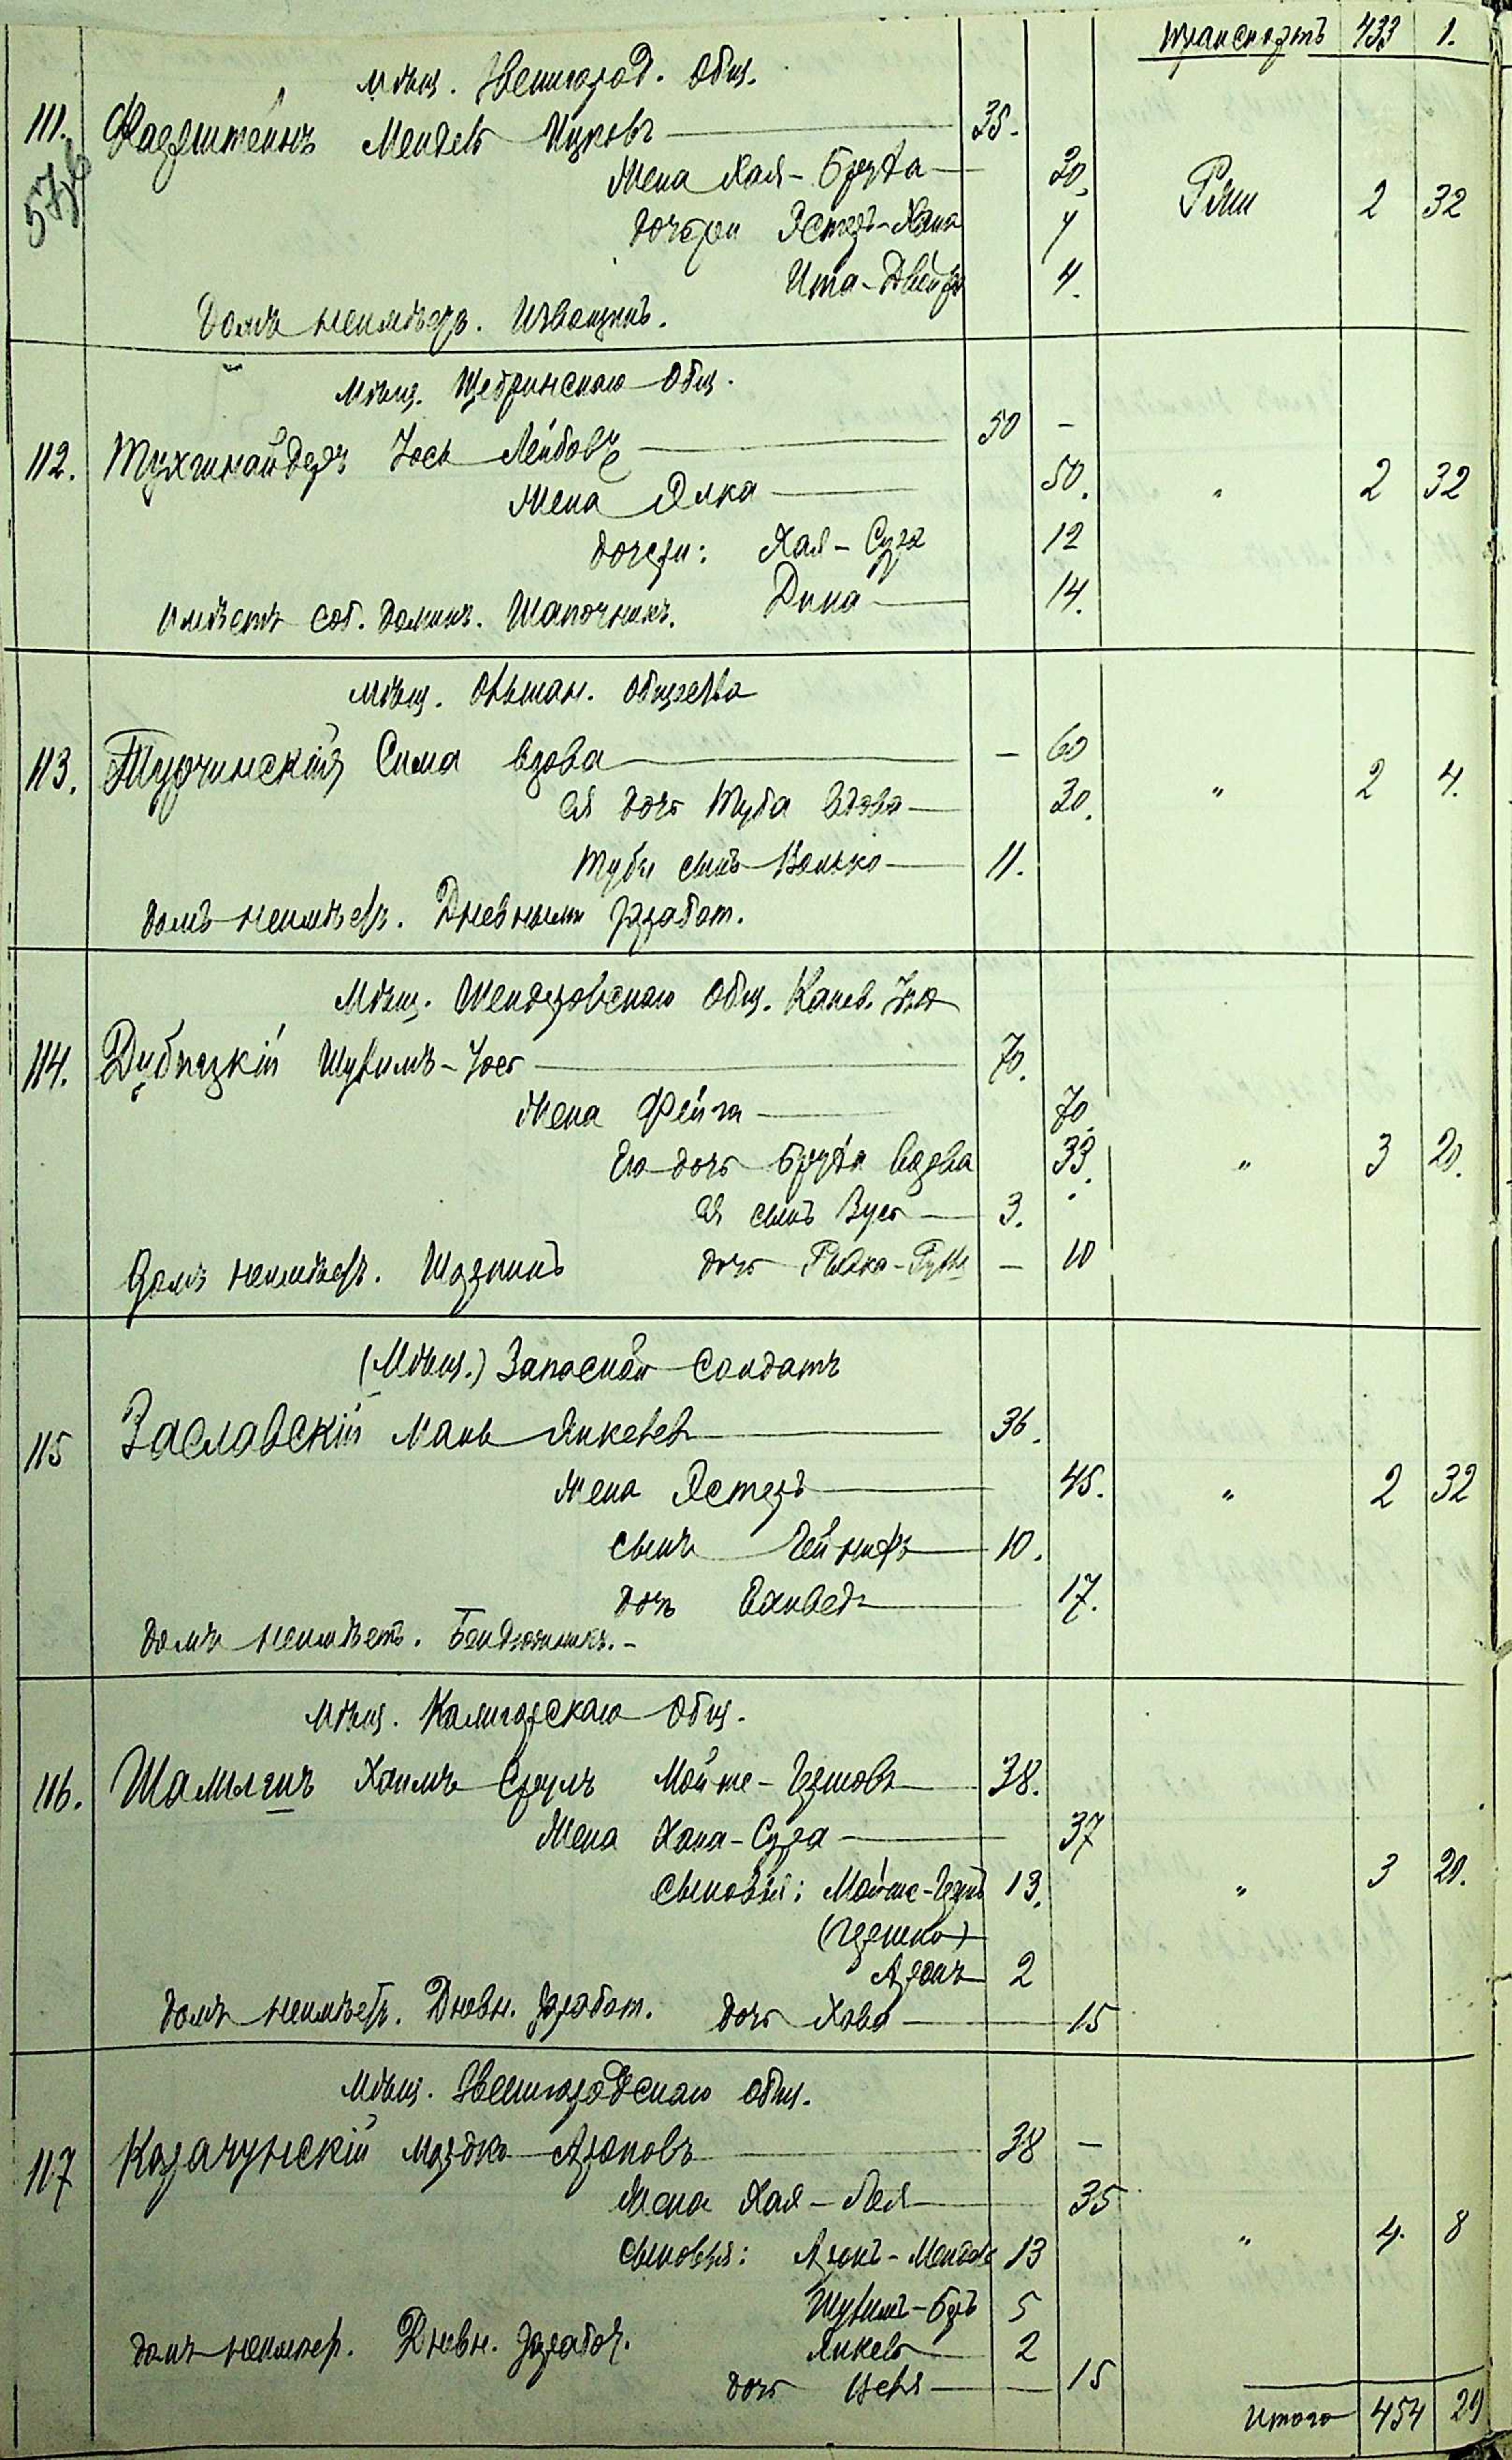 транспортъ 433 1.
Мѣщ. Звенигород. Общ.
111. Мендель Ицковъ 35.
576
Жена Хая-Бруха 30.
дочери Эстеръ-Хана 7
Ита-Двейра 4.
Ржи 2 32
Домъ неимѣетъ. Извощикъ.
Мѣщ. Щедринскаго Общ.
112. Тухшнайдеръ Іось Лейбовъ 50 -
Жена Элка 50.
" 2 32
дочери: Хая-Сура 12
Дина 14.
имѣетъ соб. домикъ. Шапочникъ.
Мѣщ. Ольшан. Общества
113. Турчинскія Сима вдова - 60
ея дочь Туба вдова 30.
" 2 4.
Тубы сынъ Волько 11.
домъ неимѣетъ. Дневными заработ.
Мѣщ. Общ. Канев. Уѣз
114. Дубницкій Шулимъ-Іось 70.
Жена Фейга 70.
Его дочь Бруха вдова 33.
" 3 20.
ея сынъ Зусь 3.
дочь - 10
Домъ неимѣетъ.
(Мѣщ.) Запасной Солдатъ
115 Заславскій Мань Янкелевъ 36.
Жена Эстеръ 45.
" 2 32
сынъ Гейнихъ 10.
дочь 17.
домъ неимѣетъ. Биндюжникъ. -
Мѣщ. Калигорскаго Общ.
116. Шамлинъ Хаимъ Сруль Мойше-Гершовъ 38.
Жена Хана-Сура 37
сыновья: Мойше-Гершъ 13.
" 3 20.
(Гершко)
Аронъ 2
домъ неимѣетъ. Дневн. заработ. дочь Хова 15
Мѣщ. Звенигородскаго общ.
117 Казачунскій Мордко Ароновъ 38 -
Жена Хая-Лея 35
сыновья: Аронъ-Мендель 13
" 4. 8
Шулимъ-Беръ 5
домъ неимѣетъ. Дневн. заработ.
Янкель 2
дочь 15
Итого 454 29